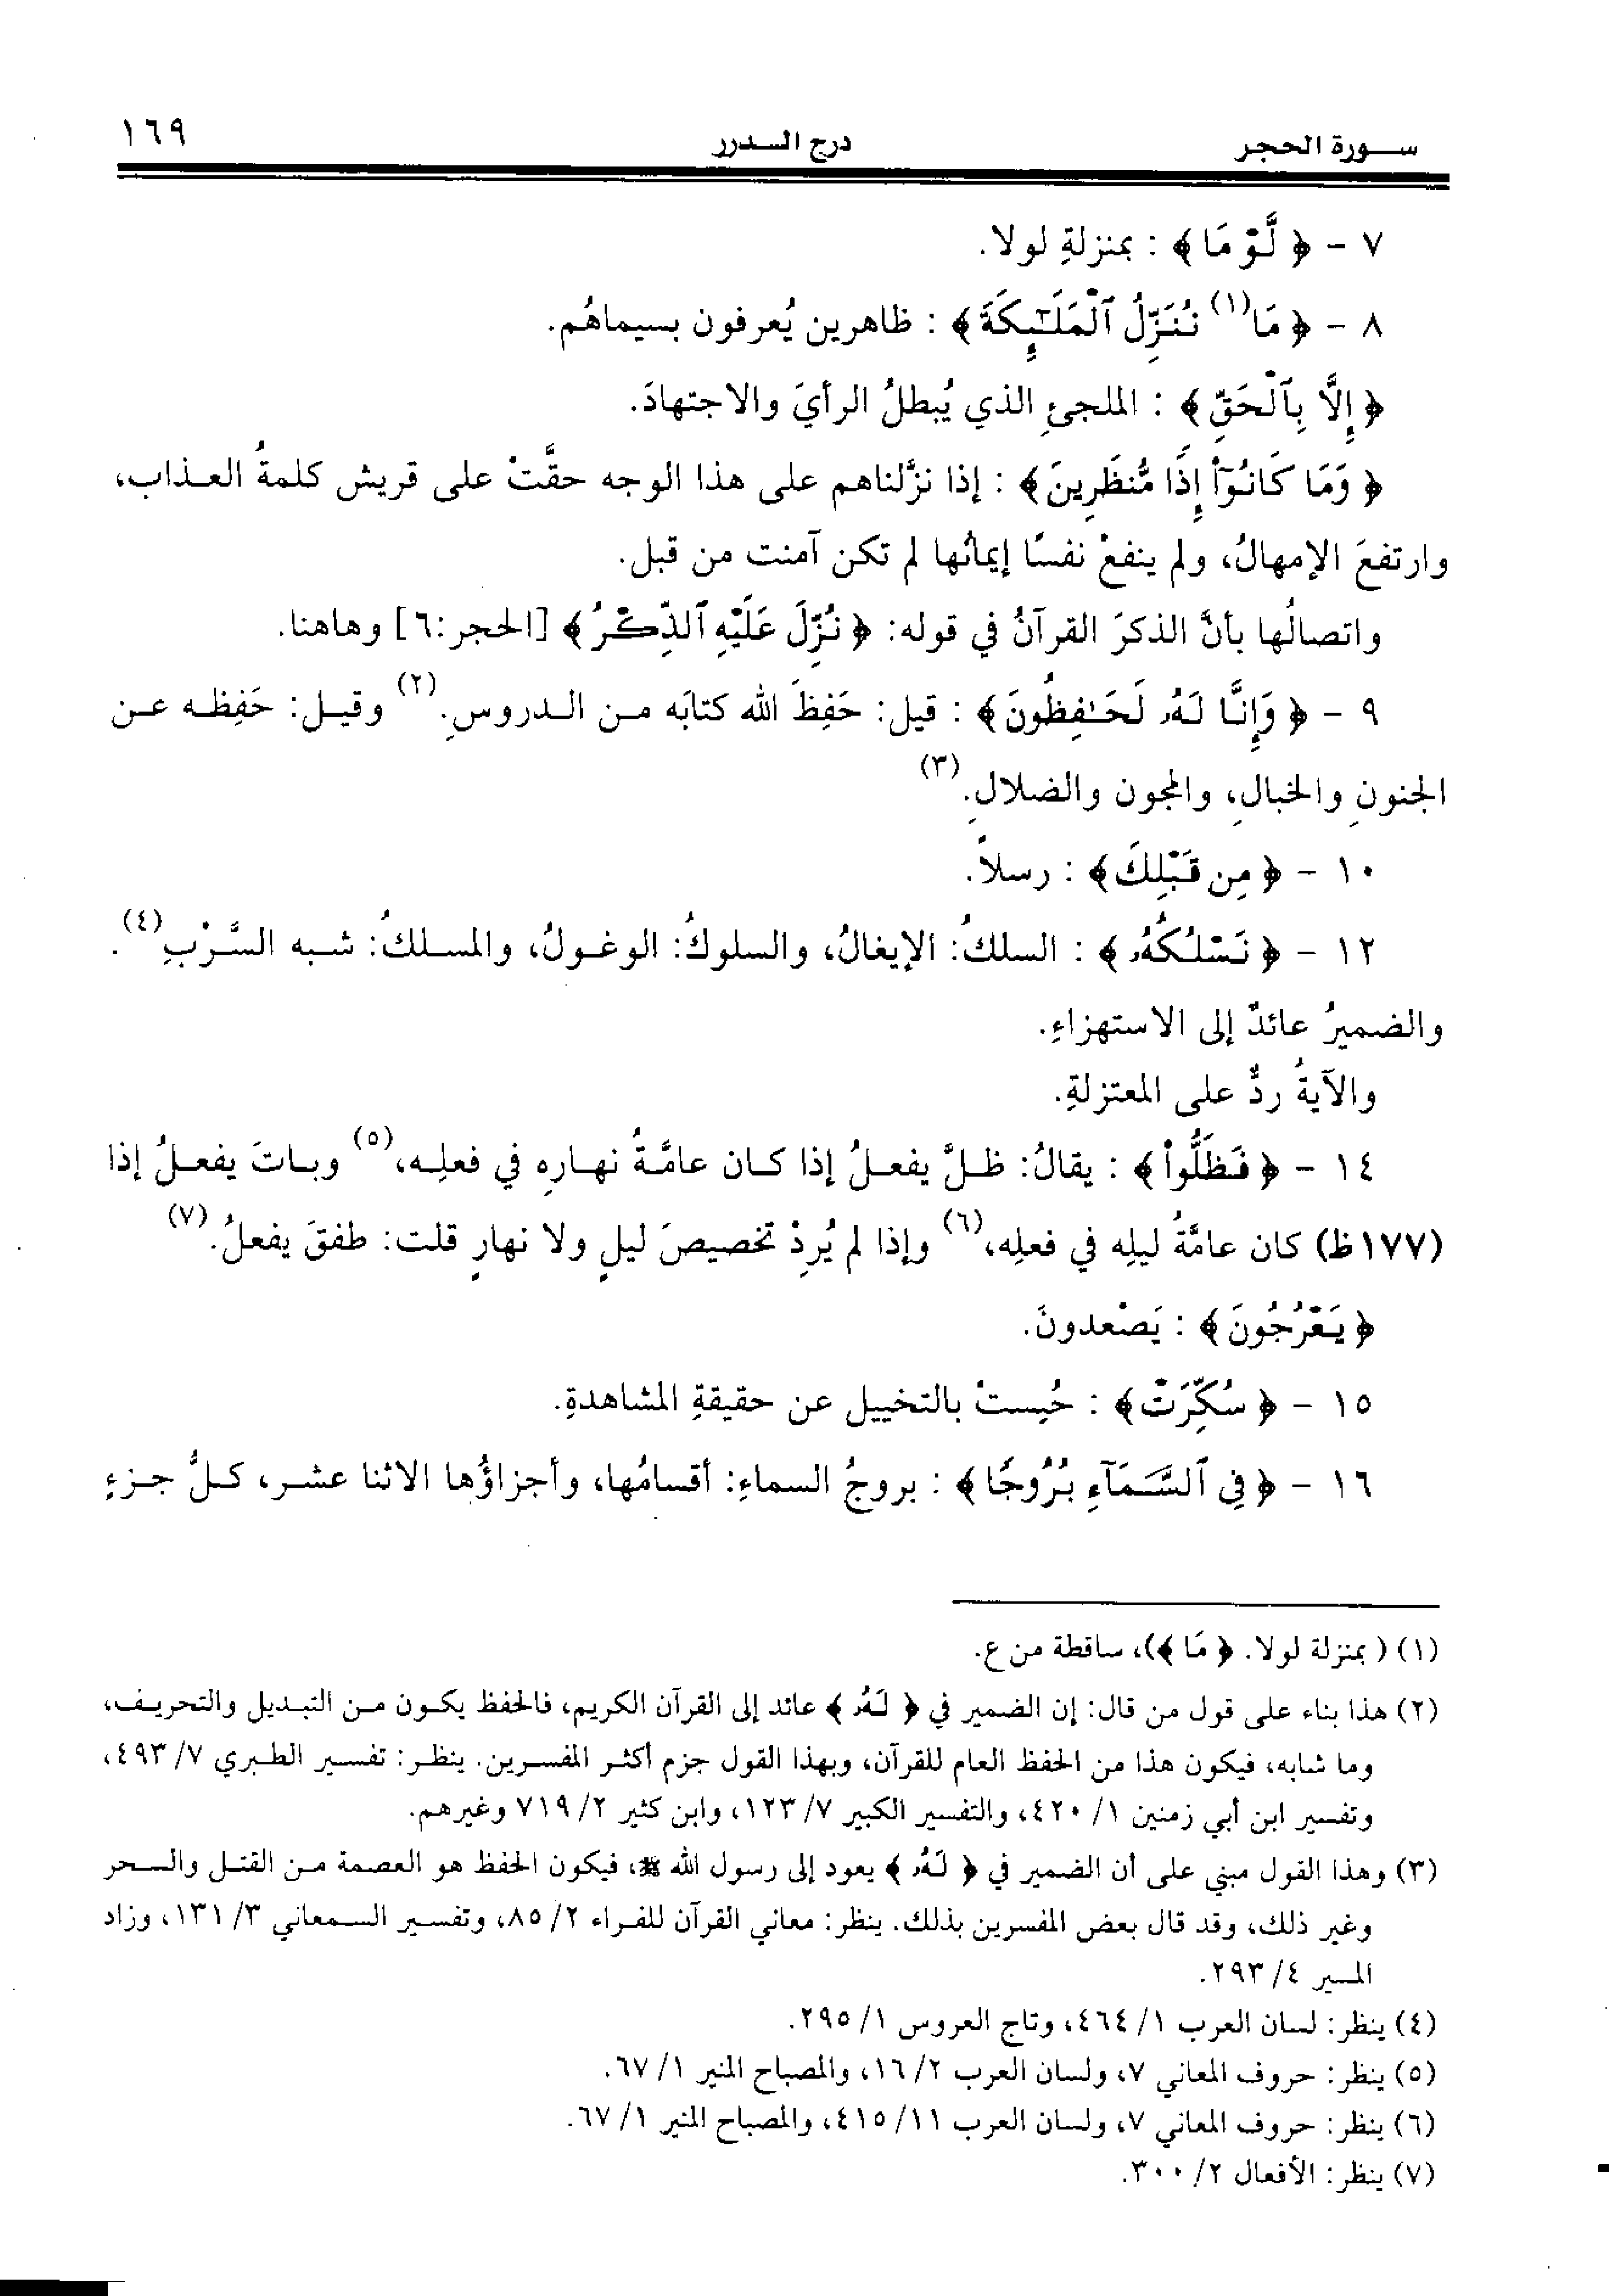 سورة الحجر درج الدرر ١٦٩
٧ - ﴿ لَّوْ مَا ﴾ : بمنزلةِ لولا.
٨ - ﴿ مَا(١) نُنَزِّلُ ٱلْمَلَـٰٓئِكَةَ ﴾ : ظاهرين يُعرفون بسيماهُم.
﴿ إِلَّا بِٱلْحَقِّ ﴾ : الملجئِ الذي يُبطلُ الرأيَ والاجتهادَ.
﴿ وَمَا كَانُوٓا۟ إِذًا مُّنظَرِينَ ﴾ : إذا نزَّلناهم على هذا الوجه حقَّتْ على قريش كلمةُ العذاب،
وارتفعَ الإمهالُ، ولم ينفعْ نفسًا إيمانُها لم تكن آمنت من قبل.
واتصالُها بأنَّ الذكرَ القرآنُ في قوله: ﴿ نُزِّلَ عَلَيْهِ ٱلذِّكْرُ ﴾ [الحجر:٦] وهاهنا.
٩ - ﴿ وَإِنَّا لَهُۥ لَحَـٰفِظُونَ ﴾ : قيل: حَفِظَ الله كتابَه من الدروسِ.(٢) وقيل: حَفِظه عن
الجنونِ والخبالِ، والمجون والضلالِ.(٣)
١٠ - ﴿ مِن قَبْلِكَ ﴾ : رسلاً.
١٢ - ﴿ نَسْلُكُهُۥ ﴾ : السلكُ: الإيغالُ، والسلوكُ: الوغولُ، والمسلكُ: شبه السَّرْبِ(٤).
والضميرُ عائدٌ إلى الاستهزاءِ.
والآيةُ ردٌّ على المعتزلةِ.
١٤ - ﴿ فَظَلُّوا۟ ﴾ : يقالُ: ظلَّ يفعلُ إذا كان عامَّةُ نهارِه في فعلِه،(٥) وباتَ يفعلُ إذا
(١٧٧ظ) كان عامَّةُ ليلِه في فعلِه،(٦) وإذا لم يُردْ تخصيصَ ليلٍ ولا نهارٍ قلت: طفقَ يفعلُ.(٧)
﴿ يَعْرُجُونَ ﴾ : يَصْعدونَ.
١٥ - ﴿ سُكِّرَتْ ﴾ : حُبِستْ بالتخييل عن حقيقةِ المشاهدةِ.
١٦ - ﴿ فِى ٱلسَّمَآءِ بُرُوجًا ﴾ : بروجُ السماءِ: أقسامُها، وأجزاؤُها الاثنا عشر، كلُّ جزءٍ
(١) ( بمنزلة لولا. ﴿ مَا ﴾)، ساقطة من ع.
(٢) هذا بناء على قول من قال: إن الضمير في ﴿ لَهُۥ ﴾ عائد إلى القرآن الكريم، فالحفظ يكون من التبديل والتحريف،
وما شابه، فيكون هذا من الحفظ العام للقرآن، وبهذا القول جزم أكثر المفسرين. ينظر: تفسير الطبري ٧/ ٤٩٣،
وتفسير ابن أبي زمنين ١/ ٤٢٠، والتفسير الكبير ٧/ ١٢٣، وابن كثير ٢/ ٧١٩ وغيرهم.
(٣) وهذا القول مبني على أن الضمير في ﴿ لَهُۥ ﴾ يعود إلى رسول الله ﷺ، فيكون الحفظ هو العصمة من القتل والسحر
وغير ذلك، وقد قال بعض المفسرين بذلك. ينظر: معاني القرآن للفراء ٢/ ٨٥، وتفسير السمعاني ٣/ ١٣١، وزاد
المسير ٤/ ٢٩٣.
(٤) ينظر: لسان العرب ١/ ٤٦٤، وتاج العروس ١/ ٢٩٥.
(٥) ينظر: حروف المعاني ٧، ولسان العرب ٢/ ١٦، والمصباح المنير ١/ ٦٧.
(٦) ينظر: حروف المعاني ٧، ولسان العرب ١١/ ٤١٥، والمصباح المنير ١/ ٦٧.
(٧) ينظر: الأفعال ٢/ ٣٠٠.